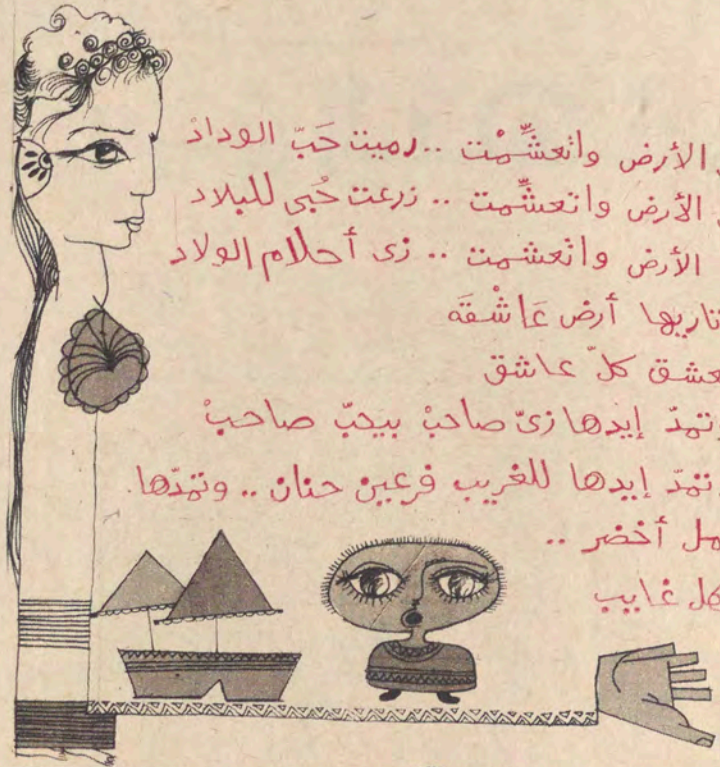 الأرض واتعشِّمْت .. رميت حَبّ الودادْ
الأرض واتعشِّمت .. زرعت حُبى للبلاد
الأرض واتعشمت .. زى أحلام الولاد
تاريها أرض عَاشْقَه
عشق كلّ عاشق
تمدّ إيدها زىّ صاحبْ بيحبّ صاحبْ
تمدّ إيدها للغريب فرعين حنان .. وتمدّها
أخضر ..
غايب